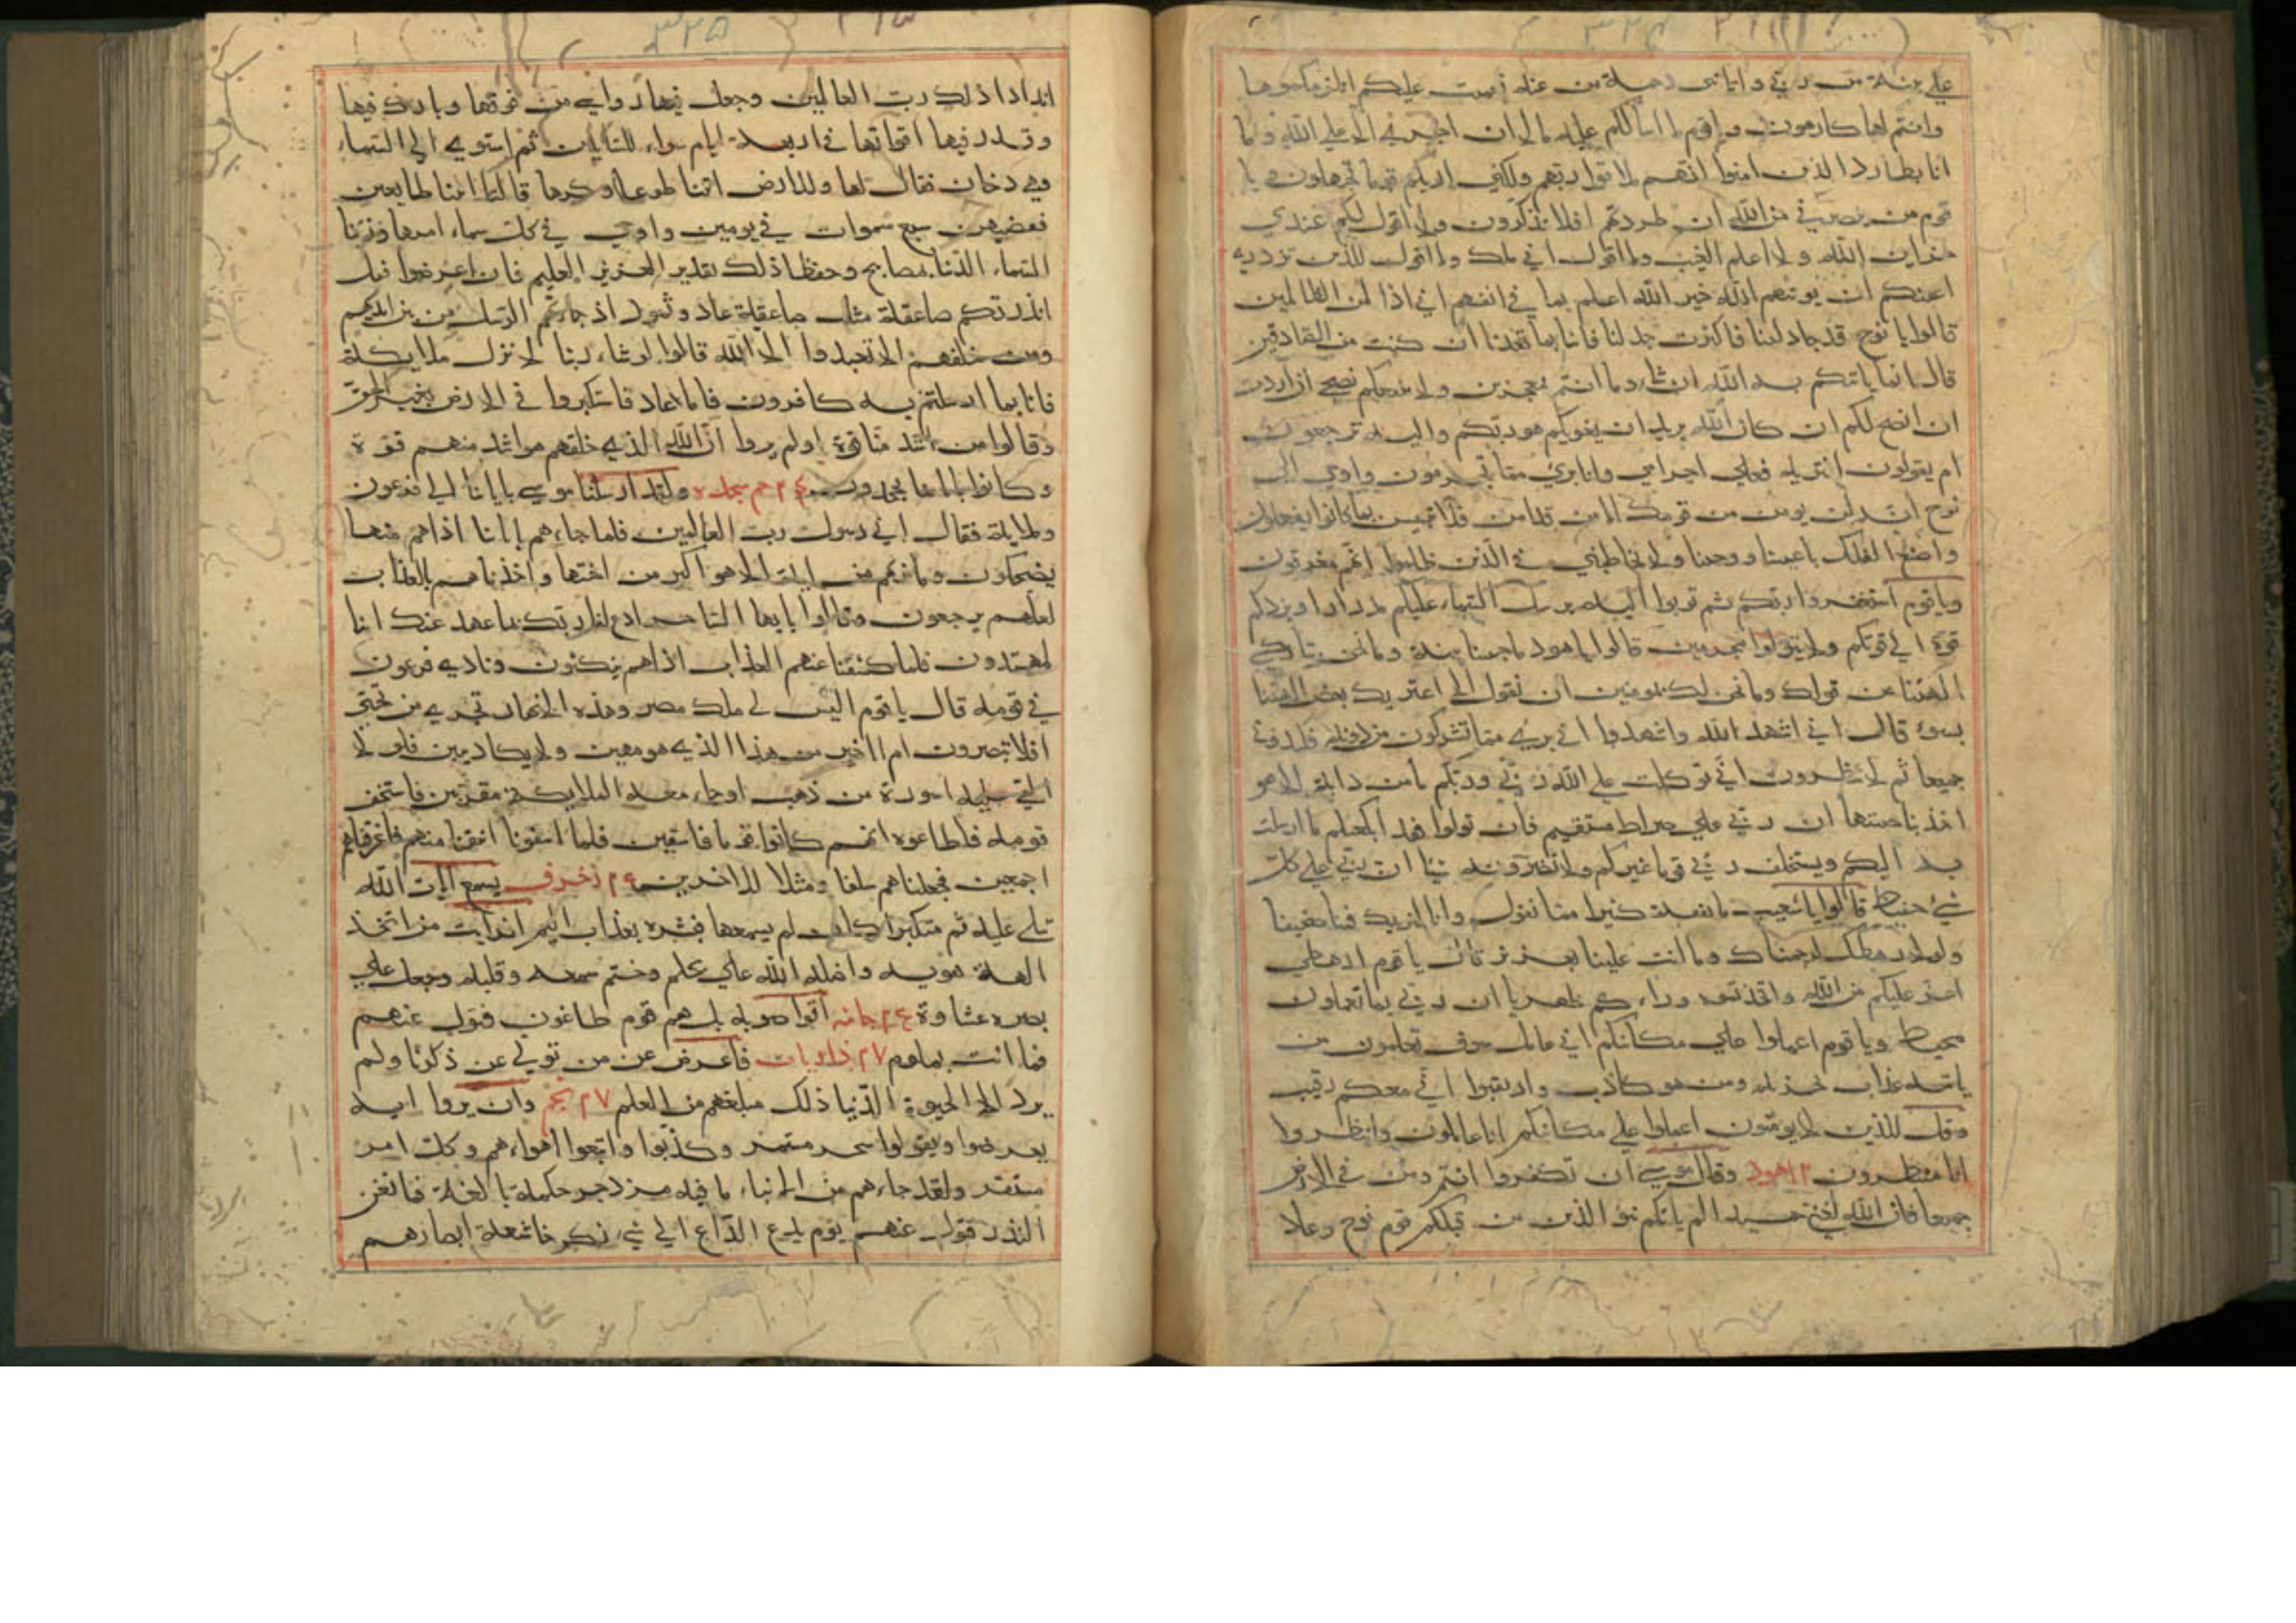 ٣٢٤
علي بينة من ربي واتاني رحمة من عنده فعميت عليكم انلزمكموها
وانتم لها كارهون ويا قوم لا اسألكم عليه مالا ان اجري الا علي الله وما
انا بطارد الذين امنوا انهم ملاقوا ربهم ولكني اريكم قوما تجهلون ويا
قوم من ينصرني من الله ان طردتهم افلا تذكرون ولا اقول لكم عندي
خزاين الله ولا اعلم الغيب ولا اقول اني ملك ولا اقول للذين تزدري
اعينكم لن يوتيهم الله خيرا الله اعلم بما في انفسهم اني اذا لمن الظالمين
قالوا يا نوح قد جادلتنا فاكثرت جدالنا فاتنا بما تعدنا ان كنت من الصادقين
قال انما ياتيكم به الله ان شاء وما انتم بمعجزين ولا ينفعكم نصحي ان اردت
ان انصح لكم ان كان الله يريد ان يغويكم هو ربكم واليه ترجعون
ام يقولون افتريه فعلي اجرامي وانا بريء مما تجرمون واوحي الي
نوح انه لن يومن من قومك الا من قد امن فلا تبتئس بما كانوا يفعلون
واصنع الفلك باعيننا ووحينا ولا تخاطبني في الذين ظلموا انهم مغرقون
ويا قوم استغفروا ربكم ثم توبوا اليه يرسل السماء عليكم مدرارا ويزدكم
قوة الي قوتكم ولا تتولوا مجرمين قالوا يا هود ما جئتنا ببينة وما نحن بتاركي
الهتنا عن قولك وما نحن لك بمومنين ان نقول الا اعتريك بعض الهتنا
بسوء قال اني اشهد الله واشهدوا اني بريء مما تشركون من دونه فكيدوني
جميعا ثم لا تنظرون اني توكلت علي الله ربي وربكم ما من دابة الا هو
اخذ بناصيتها ان ربي علي صراط مستقيم فان تولوا فقد ابلغتكم ما ارسلت
به اليكم ويستخلف ربي قوما غيركم ولا تضرونه شيئا ان ربي علي كل
شيء حفيظ قالوا يا شعيب ما نفقه كثيرا مما تقول وانا لنريك فينا ضعيفا
ولولا رهطك لرجمناك وما انت علينا بعزيز قال يا قوم ارهطي
اعز عليكم من الله واتخذتموه وراءكم ظهريا ان ربي بما تعملون
محيط ويا قوم اعملوا علي مكانتكم اني عامل سوف تعلمون من
ياتيه عذاب يخزيه ومن هو كاذب وارتقبوا اني معكم رقيب
وقل للذين لا يومنون اعملوا علي مكانتكم انا عاملون وانتظروا
انا منتظرون هود وقال موسي ان تكفروا انتم ومن في الارض
جميعا فان الله لغني حميد الم ياتكم نبؤ الذين من قبلكم قوم نوح وعاد
٣٢٥
اندادا ذلك رب العالمين وجعل فيها رواسي من فوقها وبارك فيها
وقدر فيها اقواتها في اربعة ايام سواء للسايلين ثم استوي الي السماء
وهي دخان فقال لها وللارض ائتيا طوعا او كرها قالتا اتينا طايعين
فقضيهن سبع سموات في يومين واوحي في كل سماء امرها وزينا
السماء الدنيا بمصابيح وحفظا ذلك تقدير العزيز العليم فان اعرضوا فقل
انذرتكم صاعقة مثل صاعقة عاد وثمود اذ جاءتهم الرسل من بين ايديهم
ومن خلفهم الا تعبدوا الا الله قالوا لو شاء ربنا لانزل ملايكة
فانا بما ارسلتم به كافرون فاما عاد فاستكبروا في الارض بغير الحق
وقالوا من اشد منا قوة اولم يروا ان الله الذي خلقهم هو اشد منهم قوة
وكانوا باياتنا يجحدون حم سجده ولقد ارسلنا موسي باياتنا الي فرعون
وملايه فقال اني رسول رب العالمين فلما جاءهم باياتنا اذا هم منها
يضحكون وما نريهم من اية الا هو اكبر من اختها واخذناهم بالعذاب
لعلهم يرجعون وقالوا يا ايها الساحر ادع لنا ربك بما عهد عندك اننا
لمهتدون فلما كشفنا عنهم العذاب اذا هم ينكثون ونادي فرعون
في قومه قال يا قوم اليس لي ملك مصر وهذه الانهار تجري من تحتي
افلا تبصرون ام انا خير من هذا الذي هو مهين ولا يكاد يبين فلولا
القي عليه اسورة من ذهب او جاء معه الملايكة مقترنين فاستخف
قومه فاطاعوه انهم كانوا قوما فاسقين فلما اسفونا انتقمنا منهم فاغرقناهم
اجمعين فجعلناهم سلفا ومثلا للاخرين زخرف يسمع ايات الله
تتلي عليه ثم متكبرا كان لم يسمعها فبشره بعذاب اليم افرايت من اتخذ
الهه هويه واضله الله علي علم وختم سمعه وقلبه وجعل علي
بصره غشاوة جاثيه اتواصوا به بل هم قوم طاغون فتول عنهم
فما انت بملوم ذاريات فاعرض عن من تولي عن ذكرنا ولم
يرد الا الحيوة الدنيا ذلك مبلغهم من العلم نجم وان يروا اية
يعرضوا ويقولوا سحر مستمر وكذبوا واتبعوا اهواءهم وكل امر
مستقر ولقد جاءهم من الانباء ما فيه مزدجر حكمة بالغة فما تغن
النذر فتول عنهم يوم يدع الداع الي شيء نكر خاشعة ابصارهم